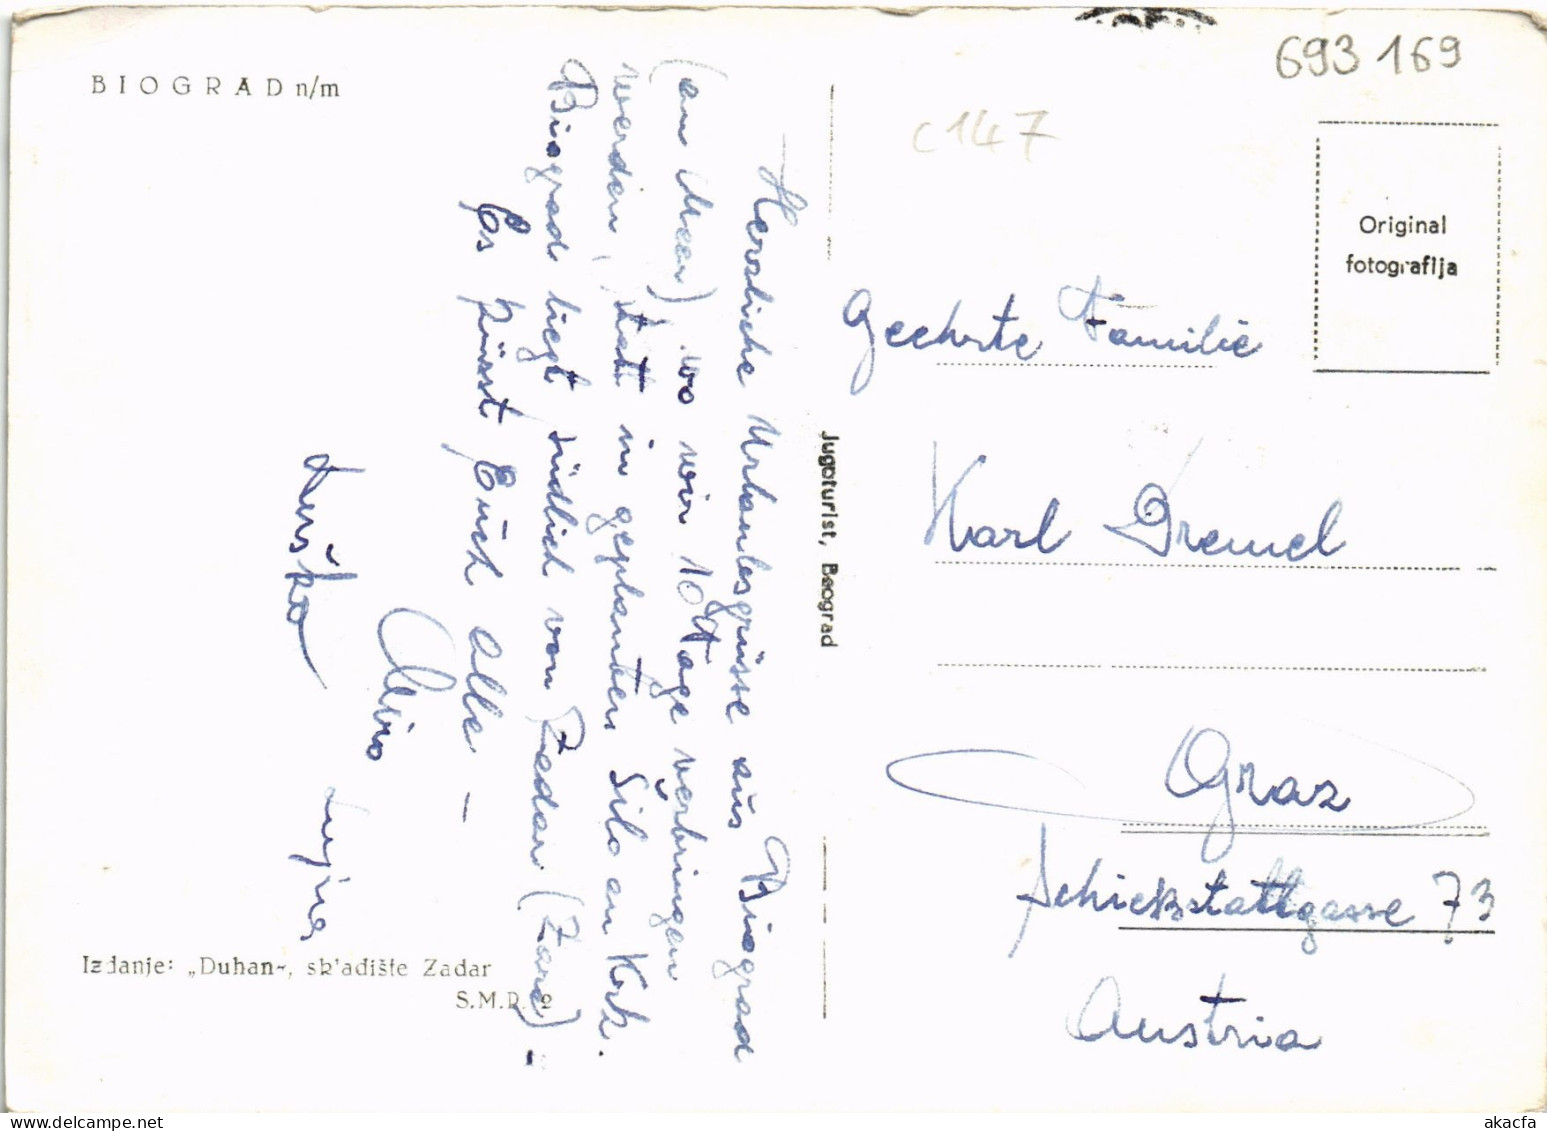 BIOGRAD n/m
Herzliche Urlaubsgrüsse aus Biograd
(am Meer) wo wir 10 Tage verbringen
werden, statt im geplanten Šilo an Krk.
Biograd liegt südlich von Zadar (Zara) -
Es küsst Euch alle -
Miro
693 169
c147
Original
fotografija
Jugoturist, Beograd
Geehrte Familie
Karl Gremel
Graz
Schickstattgasse 73
Austria
Izdanje: „Duhan", skladište Zadar
S.M.P. 2
akacfa